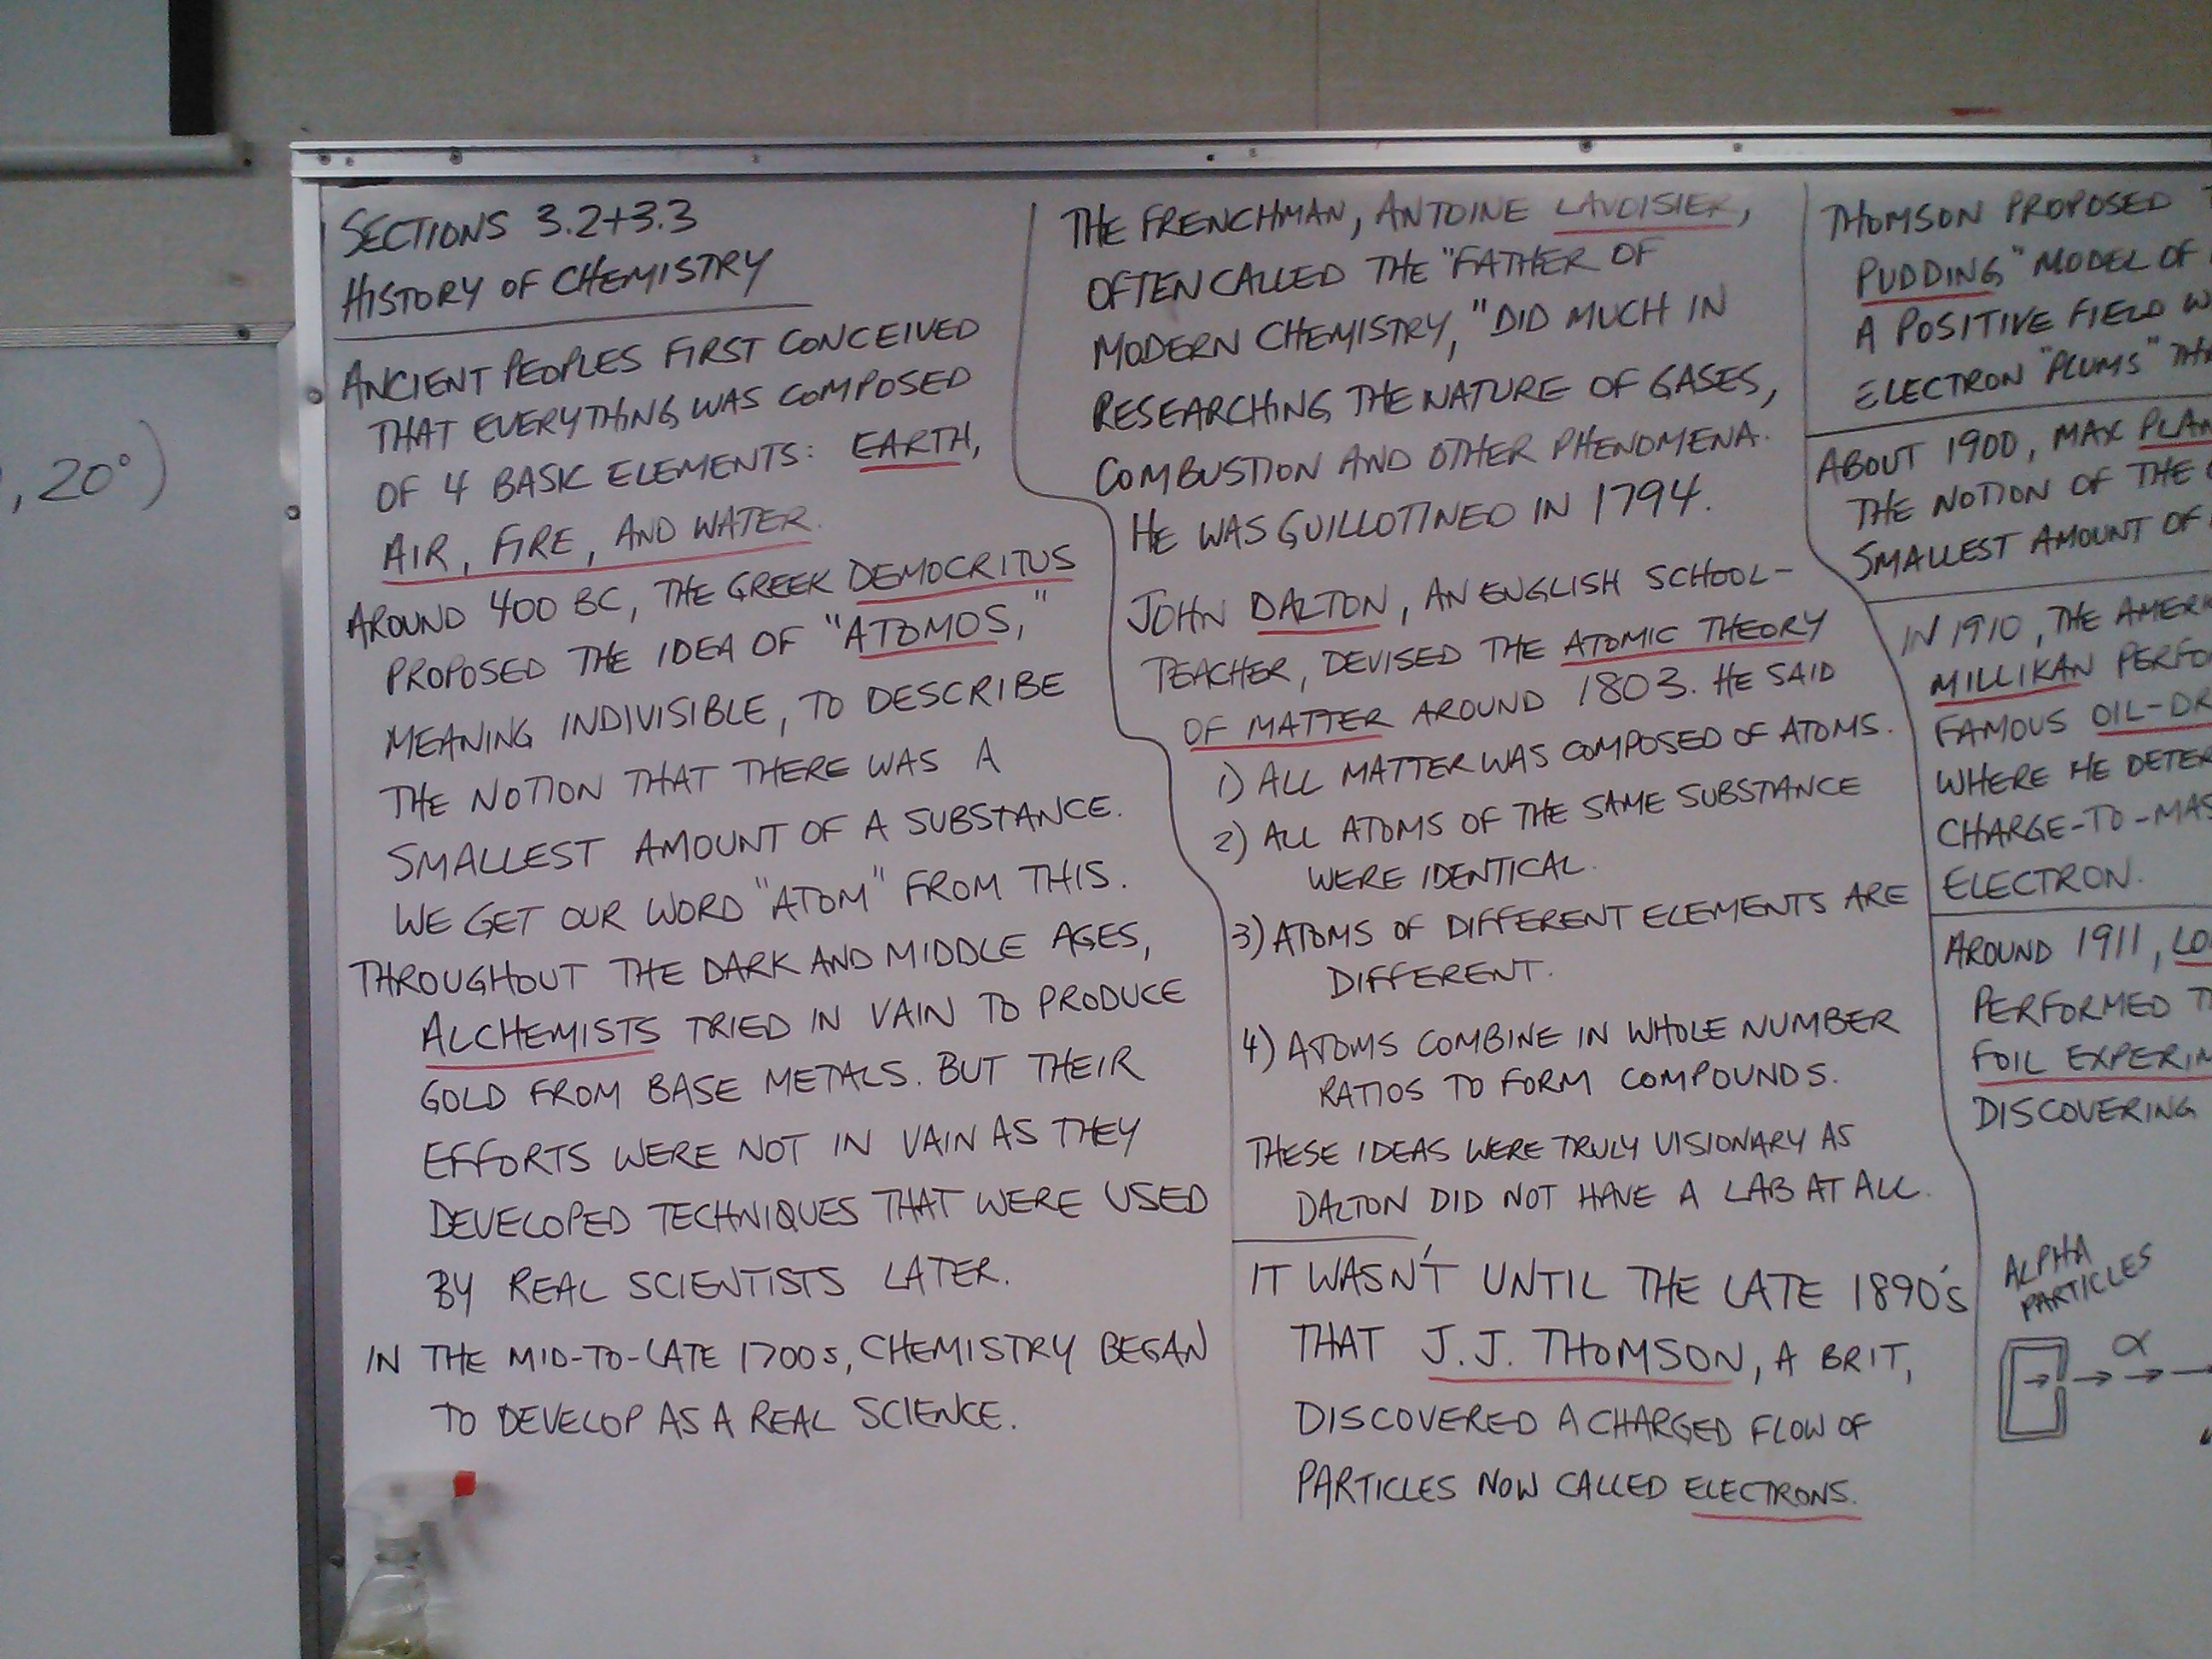 , 20°)
SECTIONS 3.2+3.3
HISTORY OF CHEMISTRY
ANCIENT PEOPLES FIRST CONCEIVED
THAT EVERYTHING WAS COMPOSED
OF 4 BASIC ELEMENTS: EARTH,
AIR, FIRE, AND WATER.
AROUND 400 BC, THE GREEK DEMOCRITUS
PROPOSED THE IDEA OF "ATOMOS,"
MEANING INDIVISIBLE, TO DESCRIBE
THE NOTION THAT THERE WAS A
SMALLEST AMOUNT OF A SUBSTANCE.
WE GET OUR WORD "ATOM" FROM THIS.
THROUGHOUT THE DARK AND MIDDLE AGES,
ALCHEMISTS TRIED IN VAIN TO PRODUCE
GOLD FROM BASE METALS. BUT THEIR
EFFORTS WERE NOT IN VAIN AS THEY
DEVELOPED TECHNIQUES THAT WERE USED
BY REAL SCIENTISTS LATER.
IN THE MID-TO-LATE 1700s, CHEMISTRY BEGAN
TO DEVELOP AS A REAL SCIENCE.
THE FRENCHMAN, ANTOINE LAVOISIER,
OFTEN CALLED THE "FATHER OF
MODERN CHEMISTRY," DID MUCH IN
RESEARCHING THE NATURE OF GASES,
COMBUSTION AND OTHER PHENOMENA.
HE WAS GUILLOTINED IN 1794.
JOHN DALTON, AN ENGLISH SCHOOL-
TEACHER, DEVISED THE ATOMIC THEORY
OF MATTER AROUND 1803. HE SAID
1) ALL MATTER WAS COMPOSED OF ATOMS.
2) ALL ATOMS OF THE SAME SUBSTANCE
WERE IDENTICAL.
3) ATOMS OF DIFFERENT ELEMENTS ARE
DIFFERENT.
4) ATOMS COMBINE IN WHOLE NUMBER
RATIOS TO FORM COMPOUNDS.
THESE IDEAS WERE TRULY VISIONARY AS
DALTON DID NOT HAVE A LAB AT ALL.
IT WASN'T UNTIL THE LATE 1890's
THAT J.J. THOMSON, A BRIT,
DISCOVERED A CHARGED FLOW OF
PARTICLES NOW CALLED ELECTRONS.
THOMSON PROPOSED
PUDDING" MODEL OF
A POSITIVE FIELD
ELECTRON "PLUMS"
ABOUT 1900, MAX PLAN
THE NOTION OF THE
SMALLEST AMOUNT OF
IN 1910, THE AMERI
MILLIKAN PERFO
FAMOUS OIL-DR
WHERE HE DETER
CHARGE-TO-MAS
ELECTRON.
AROUND 1911, LO
PERFORMED T
FOIL EXPERIM
DISCOVERING
ALPHA
PARTICLES
α